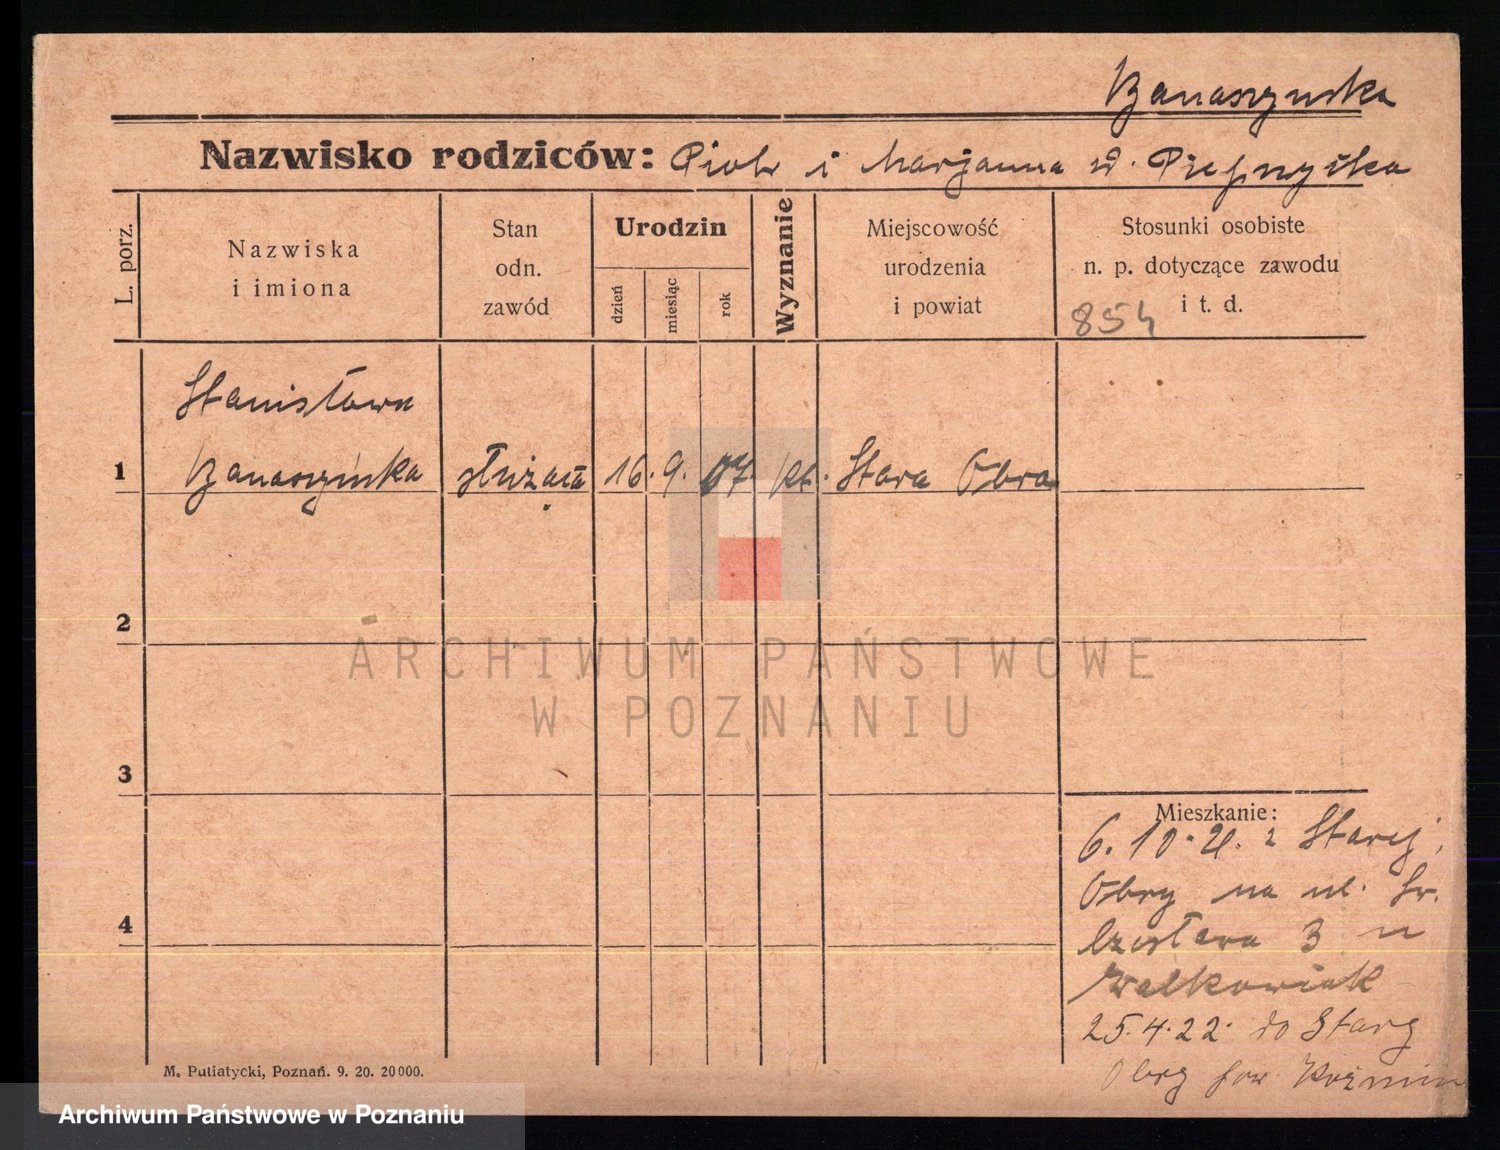 Banaszynska
Nazwisko rodziców: Piotr i Marjanna
L. porz.
Nazwiska
i imiona
Stan
odn.
zawód
Urodzin
dzień
miesiąc
rok
Wyznanie
Miejscowość
urodzenia
i powiat
Stosunki osobiste
n. p. dotyczące zawodu
i t. d.
854
Stanisława
1 Banaszyńska służąca 16. 9. 07. kt. Stara Obra
2
ARCHIWUM PAŃSTWOWE
W POZNANIU
3
Mieszkanie:
6. 10. 21. z Starej
Obry na ul. Św.
Czesława 3 u
Walkowiak
25.4.22. do Starej
Obry pow. Koźmin
4
M. Putiatycki, Poznań. 9. 20. 20000.
Archiwum Państwowe w Poznaniu